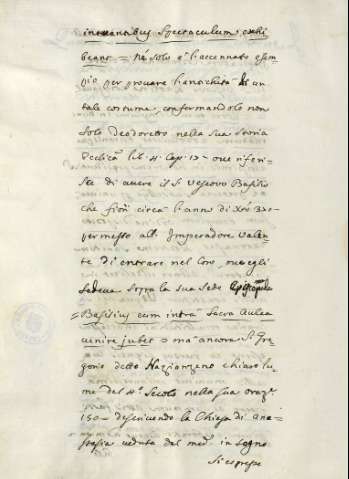 intrantibus Spectaculum exhi
beant = Né solo è l'accennato esem
pio per provare l'antichità di un
tale costume, confermandolo non
solo Deodoretto nella sua Storia
Ecclica lib. 4. Cap. 19 - ove riferi=
sce di avere il S. Vescovo Basilio
che fiorì circa l'anno di
permesso all' Imperadore Valen
te di entrare nel Coro, ove egli
sedeva sopra la sua Sede Episcopale
= Basilius eum intra Sacra Aulea
venire jubet = ma ancora S. Gre
gorio detto Nazianzeno chiaro lu
me del 4º Secolo nella sua oraz.
descrivendo la Chiesa di Ana
stasia veduta dal med. in Sogno
Si espresse